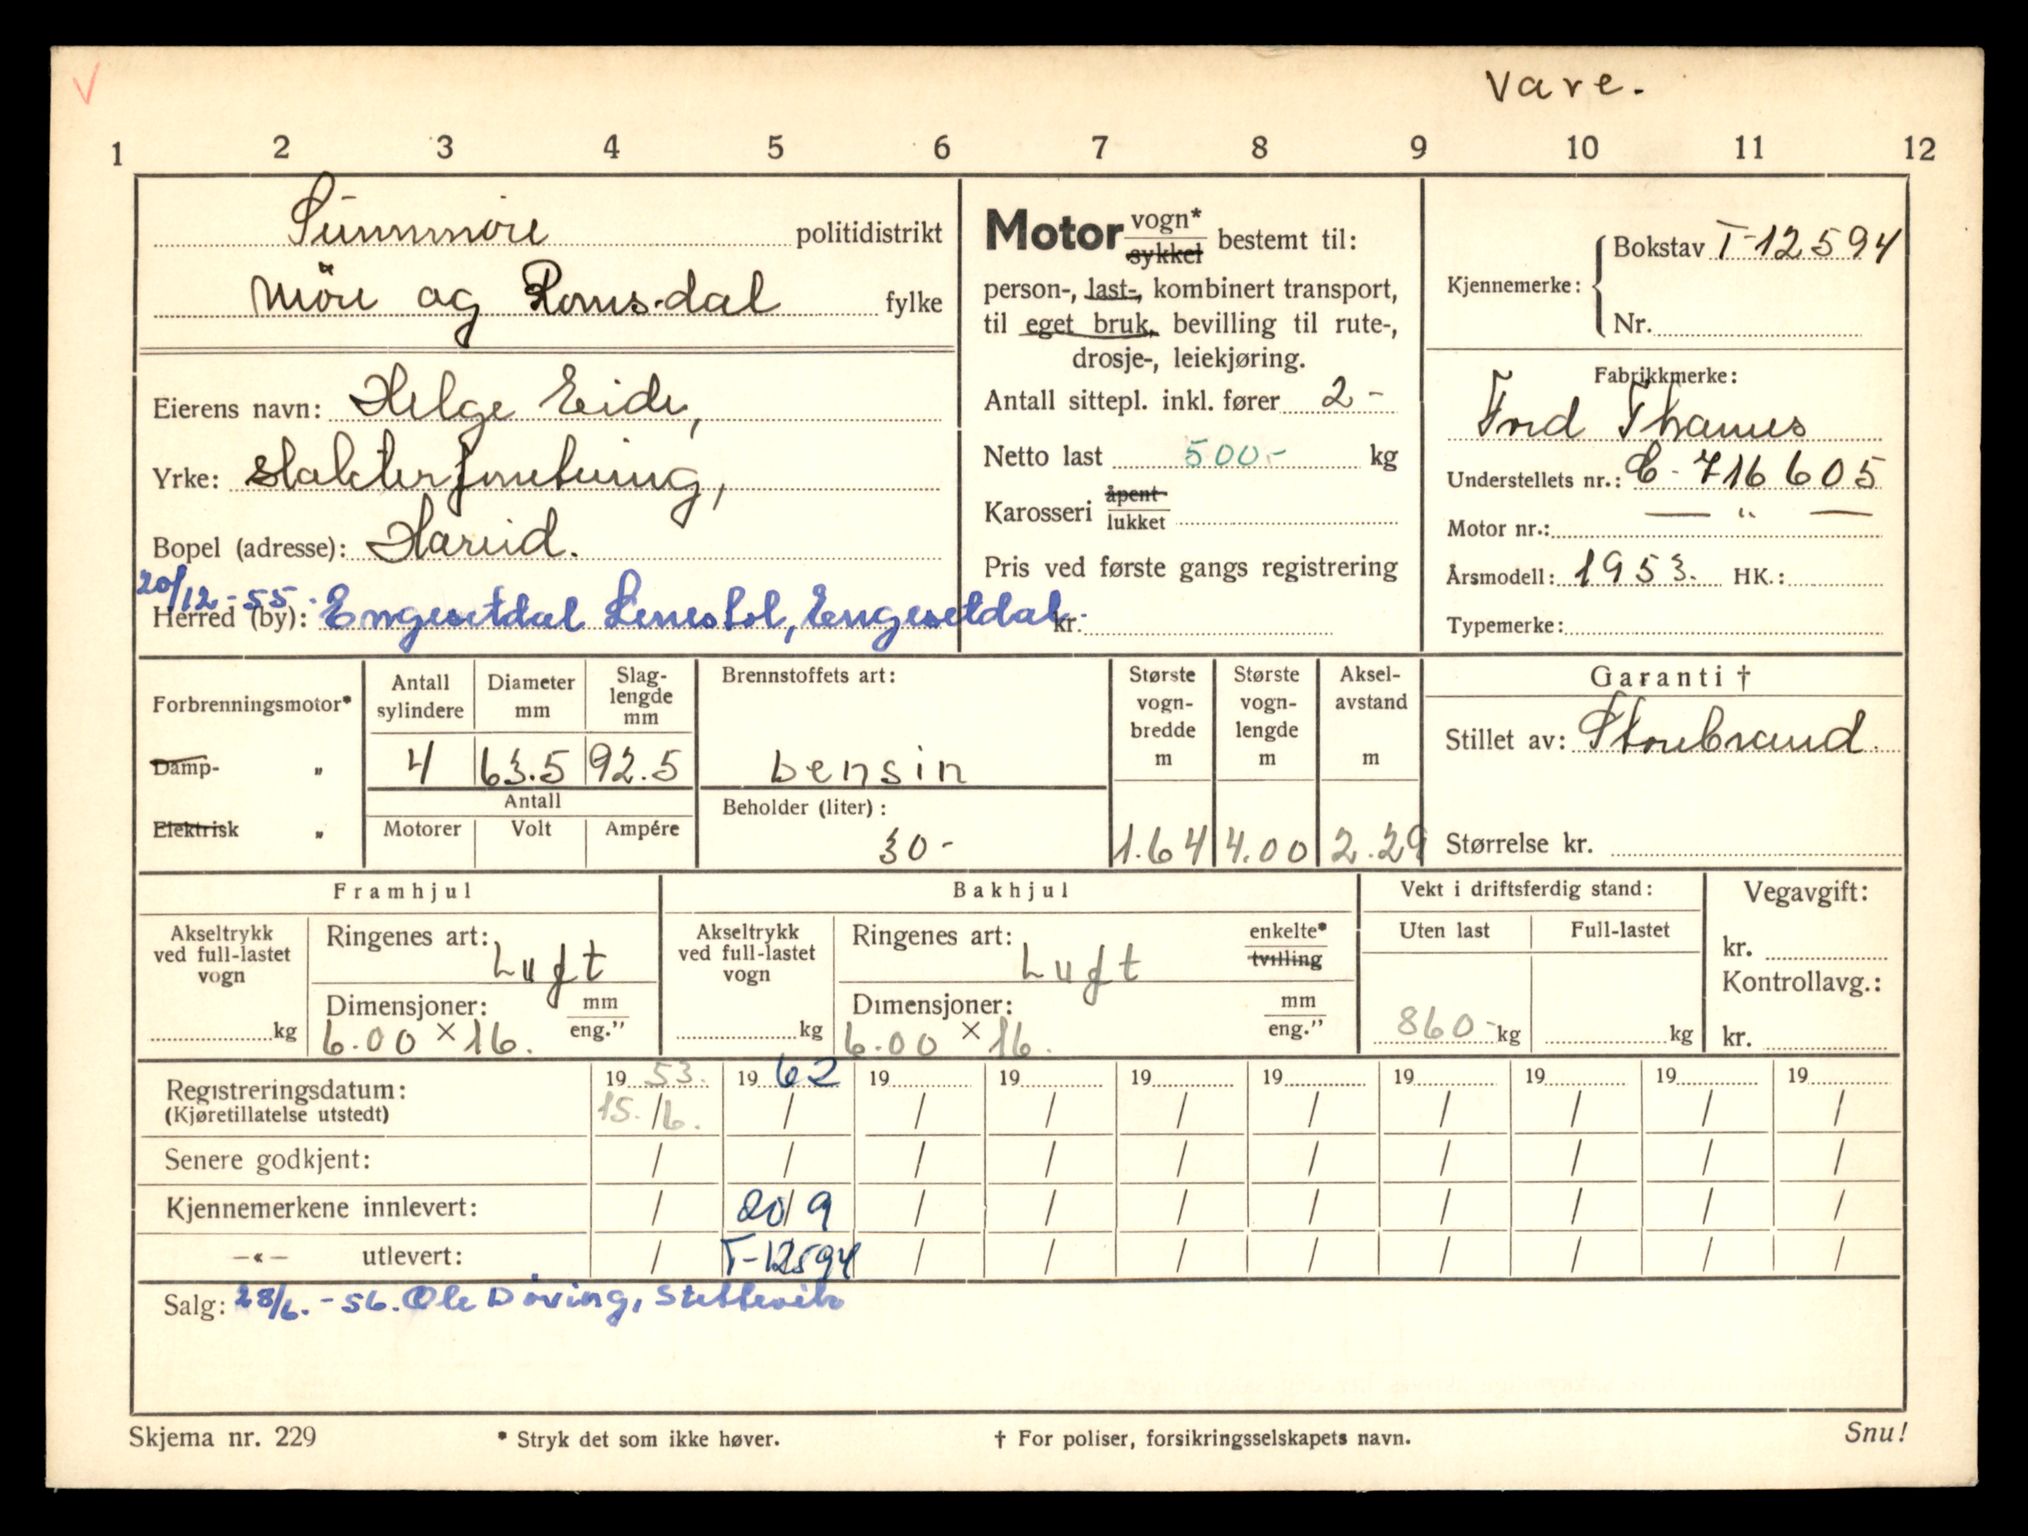 V
Vare.
1 2 3 4 5 6 7 8 9 10 11 12
Sunnmöre politidistrikt
Möre og Romsdal fylke
Eierens navn: Helge Eide,
Yrke: slakterforretning,
Bopel (adresse): Hareid.
20/12-55.
Herred (by): Engesetdal Lenestol, Engesetdal.
Motor vogn* sykkel bestemt til:
person-, last-, kombinert transport,
til eget bruk, bevilling til rute-,
drosje-, leiekjøring.
Antall sittepl. inkl. fører 2-
Netto last 500.- kg
Karosseri åpent lukket
Pris ved første gangs registrering
kr.
Kjennemerke: Bokstav T-12594
Nr.
Fabrikkmerke:
Ford Thames
Understellets nr.: C-716605
Motor nr.: — " —
Årsmodell: 1953. HK.:
Typemerke:
Forbrenningsmotor*
Damp- „
Elektrisk „
Antall sylindere Diameter mm Slaglengde mm
4 63.5 92.5
Antall
Motorer Volt Ampére
Brennstoffets art:
bensin
Beholder (liter):
30-
Største vogn-bredde m
1.64
Største vogn-lengde m
4.00
Aksel-avstand m
2.29
Garanti †
Stillet av: Storebrand.
Størrelse kr.
Framhjul
Akseltrykk ved full-lastet vogn
kg
Ringenes art: Luft
Dimensjoner: mm eng."
6.00 × 16.
Bakhjul
Akseltrykk ved full-lastet vogn
kg
Ringenes art: Luft enkelte* tvilling
Dimensjoner: mm eng."
6.00 × 16.
Vekt i driftsferdig stand:
Uten last Full-lastet
860- kg kg
Vegavgift:
kr.
Kontrollavg.:
kr.
Registreringsdatum: 19 53. 19 62 19 19 19 19 19 19 19 19
(Kjøretillatelse utstedt) 15./6. / / / / / / / / /
Senere godkjent: / / / / / / / / / /
Kjennemerkene innlevert: / 20/9 / / / / / / / /
—«— utlevert: / T-12594 / / / / / / / /
Salg: 28/6.-56. Ole Döving, Stettevik
Skjema nr. 229 * Stryk det som ikke høver. † For poliser, forsikringsselskapets navn. Snu!